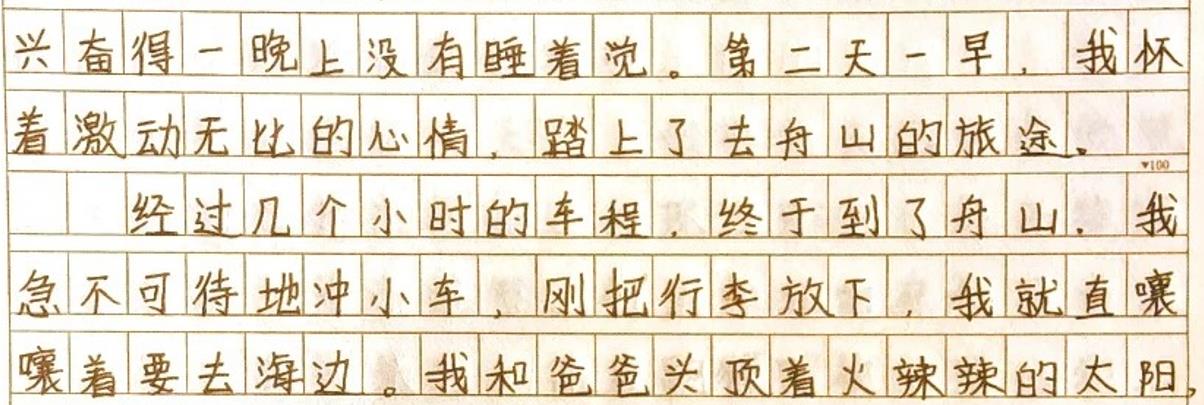 兴奋得一晚上没有睡着觉。第二天一早,我怀
着激动无比的心情,踏上了去舟山的旅途。
▼100
经过几个小时的车程,终于到了舟山.我
急不可待地冲小车,刚把行李放下,我就直嚷
嚷着要去海边。我和爸爸头顶着火辣辣的太阳,